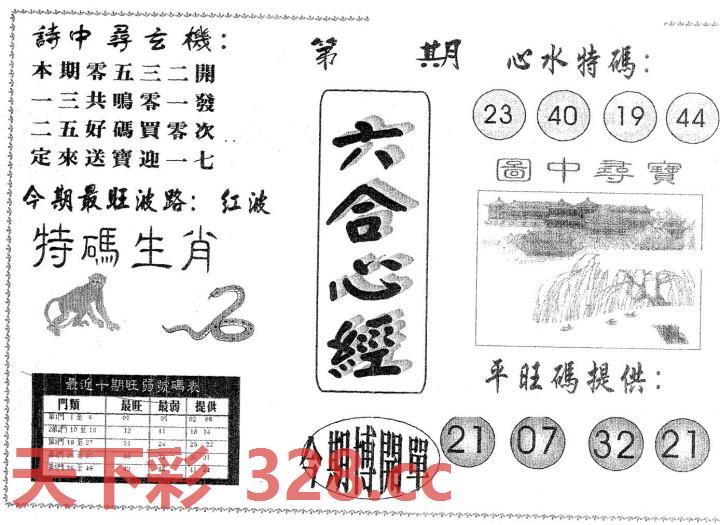 詩中尋玄機：
本期零五三二開
一三共鳴零一發
二五好碼買零次
定來送寶迎一七
今期最旺波路：红波
特碼生肖
最近十期旺弱號碼表
門類 最旺 最弱 提供
第 期
六合心經
今期博開單
心水特码：
23 40 19 44
圖中尋寶
平旺码提供：
21 07 32 21
天下彩 328.cc